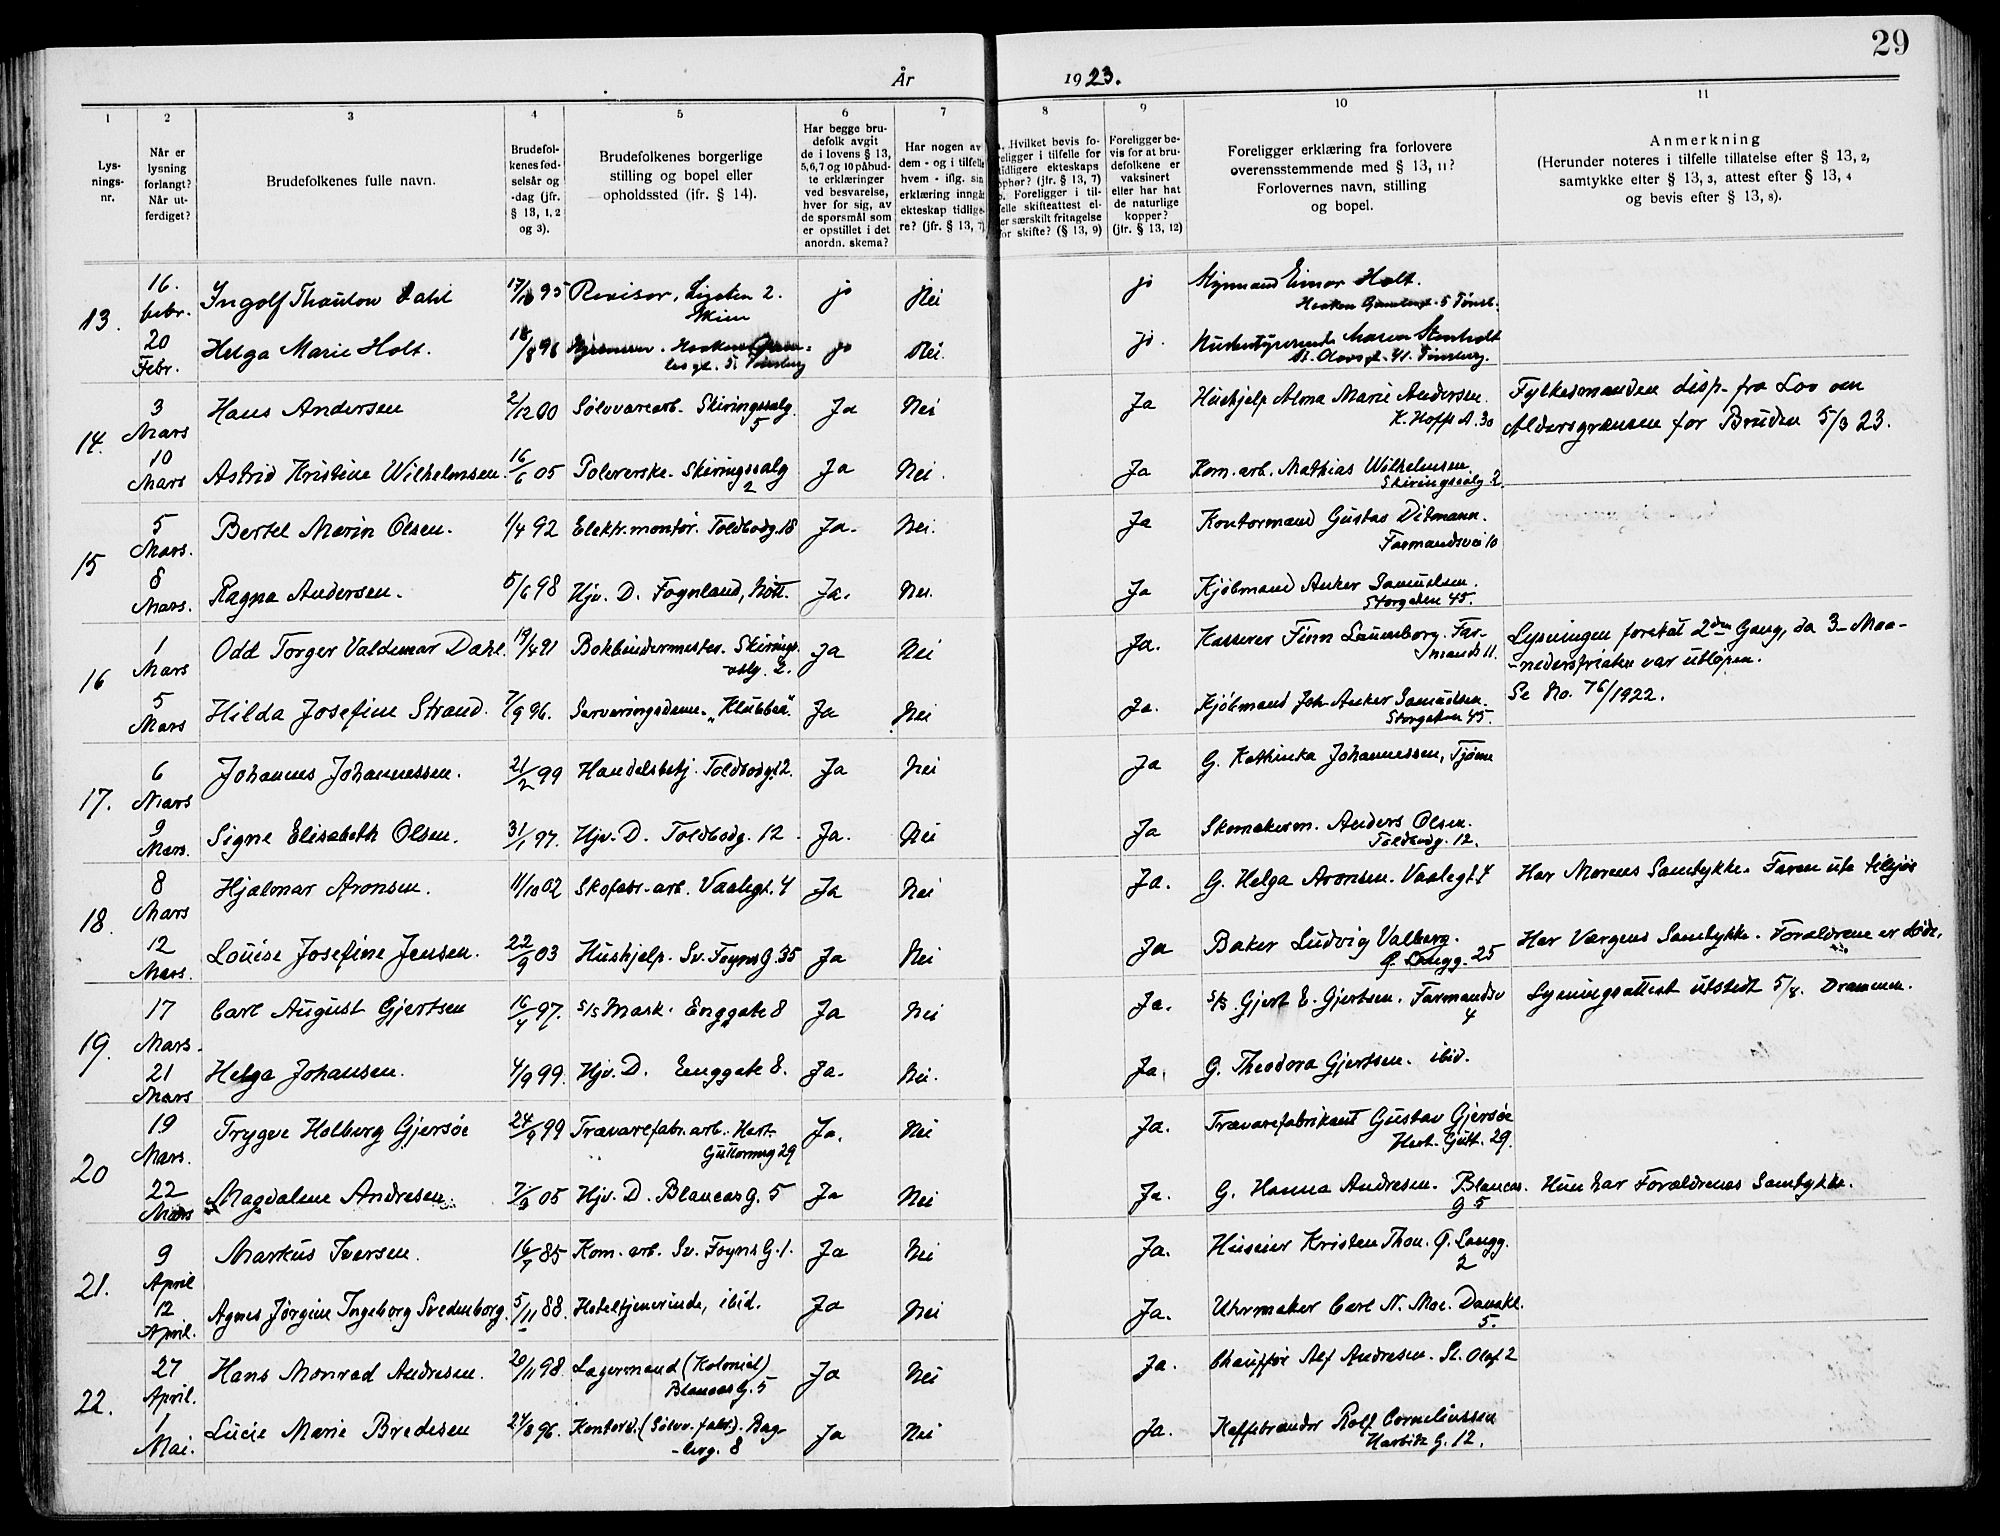 29
År 1923.
1 2 3 4 5 6 7 8 9 10 11
Lys-
nings-
nr.
Når er
lysning
forlangt?
Når ut-
ferdiget?
Brudefolkenes fulle navn.
Brudefol-
kenes fød-
selsår og
-dag (jfr.
§ 13, 1, 2
og 3).
Brudefolkenes borgerlige
stilling og bopel eller
opholdssted (jfr. § 14).
Har begge bru-
defolk avgit
de i lovens § 13,
5,6,7 og 10 påbud-
te erklæringer
ved besvarelse,
hver for sig, av
de spørsmål som
er opstillet i det
anordn. skema?
Har nogen av
dem - og i tilfelle
hvem - iflg. sin
erklæring inngåt
ekteskap tidlige-
re? (jfr. § 13, 7)
Hvilket bevis fo-
religger i tilfelle for
tidligere ekteskaps
ophør? (jfr. § 13, 7)
b. Foreligger i til-
felle skifteattest el-
ler særskilt fritagelse
for skifte? (§ 13, 9)
Foreligger be-
vis for at bru-
defolkene er
vaksinert
eller har hat
de naturlige
kopper?
(jfr. § 13, 12)
Foreligger erklæring fra forlovere
overensstemmende med § 13, 11?
Forlovernes navn, stilling
og bopel.
Anmerkning
(Herunder noteres i tilfelle tillatelse efter § 13, 2,
samtykke efter § 13, 3, attest efter § 13, 4
og bevis efter § 13, 8).
13. 16. febr. Ingolf Thaulow Dahl 95 Revisor, 2. Skien ja Nei ja Styrmand Einar Holt.
5 Tønsb.
20 Febr. Helga Marie Holt. 18/8 96 ja Nei ja. Maren Stenholt
St. Olavsgt. 41. Tønsberg.
14. 3 Mars Hans Andersen 2/12 00 Sølvvarearb. Skiringssalg. 5 Ja Nei Ja Hushjelp Alma Marie Andersen.
K. Hoffs A. 30
Fylkesmanden disp. fra Lov om
Aldersgrænsen for Bruden 5/3 23.
10 Mars Astrid Kristine Wilhelmsen. 16/6 05 Polererske. Skiringssalg 2 Ja Nei. Ja Kom. arb. Mathias Wilhelmsen
Skiringssalg 2.
15 5 Mars. Bertel Marin Olsen. 1/4 92 Elektr. montør. Toldbodg. 18 Ja. Nei. Ja Kontormand Gustav Ditmann.
Farmandsvei 10
8 Mars. Ragna Andersen. 5/6 98 Hjv. D. Føynland, Nøtt. Ja. Nei. Ja Kjøbmand Anker Samuelsen.
Storgaten 45.
16 1 Mars Odd Torger Valdemar Dahl 19/4 91 Bokbindermester. Skirings-
salg. 2. Ja Nei Ja. Kasserer Finn Lauenborg. Far-
mandsv 11.
Lysningen foretat 2den Gang, da 3-Maa-
-nedersfristen var utløpen.
Se No. 76/1922.
5 Mars Hilda Josefine Strand. 7/9 96. Serveringsdame. "Klubben". Ja Nei Ja. Kjøbmand Joh. Anker Samuelsen.
Storgaten 45.
17. 6 Mars Johannes Johannessen. 21/2 99 Handelsbetj. Toldbodgt. 12. Ja Nei Ja G. Kathinka Johannessen, Tjøme
9 Mars. Signe Elisabeth Olsen. 31/1 97. Hjv. D. Toldbodg. 12 Ja. Nei Ja Skomakerm. Anders Olsen.
Toldbodg. 12.
18. 8 Mars Hjalmar Aronsen. 11/10 02 Skofabr. arb. Vaalegt. 4 Ja Nei Ja. G. Helga Aronsen. Vaalegt. 4 Har Morens Samtykke. Faren ute tilsjøs
12 Mars. Louise Josefine Jensen. 22/9 03 Hushjelp. Sv. Foyns G. 35 Ja Nei Ja Baker Ludvig Valberg.
G. Langg. 25
Har Vergens Samtykke. Forældrene er døde.
19. 17 Mars. Carl August Gjertsen 97. s/s Mask. Enggate 8 Ja Nei Ja. s/s. Gjert E. Gjertsen. Farmandsv
4
Lysningsattest utstedt 5/8. Drammen.
21 Mars Helga Johansen. 4/9 99. Hjv. D. Enggate 8. Ja. Nei. Ja. G. Theodora Gjertsen. ibid.
20 19 Mars. Trygve Holberg Gjersøe 24/9 99 Trævarefabr. arb. Hert.
Guttormsg 29 Ja. Nei Ja. Trævarefabrikant Gustav Gjersøe
Hert. Gutt. 29.
22 Mars Magdalene Andresen. 05 Hjv. D. Blancas G. 5 Ja Nei Ja. G. Hanna Andresen. Blancas.
G 5
Hun har Forældrenes Samtykke.
21. 9 April Markus Iversen. 85 Kom. arb. Sv. Foyns G. 1. Ja Nei Ja. Huseier Kristen Thon. G. Langg.
2
12 April. Agnes Jørgine Ingeborg Svedenborg. 5/11 88. Hoteltjenerinde, ibid. Ja Nei Ja. Uhrmaker Carl N. Moe. Danskt.
5.
22. 27 April. Hans Monrad Andresen. 20/11 98. Lagermand (Kolonial)
Blancas G. 5 Ja Nei Ja. Chauffør Alf Andresen. St. Olaf 2
1 Mai. Lucie Marie Bredesen 24/8 96. Kontord. (Sølvv. fabr.). Bag-
-berg. 8 Ja Nei Ja. Kaffebrænder Rolf Corneliussen
G. 12.